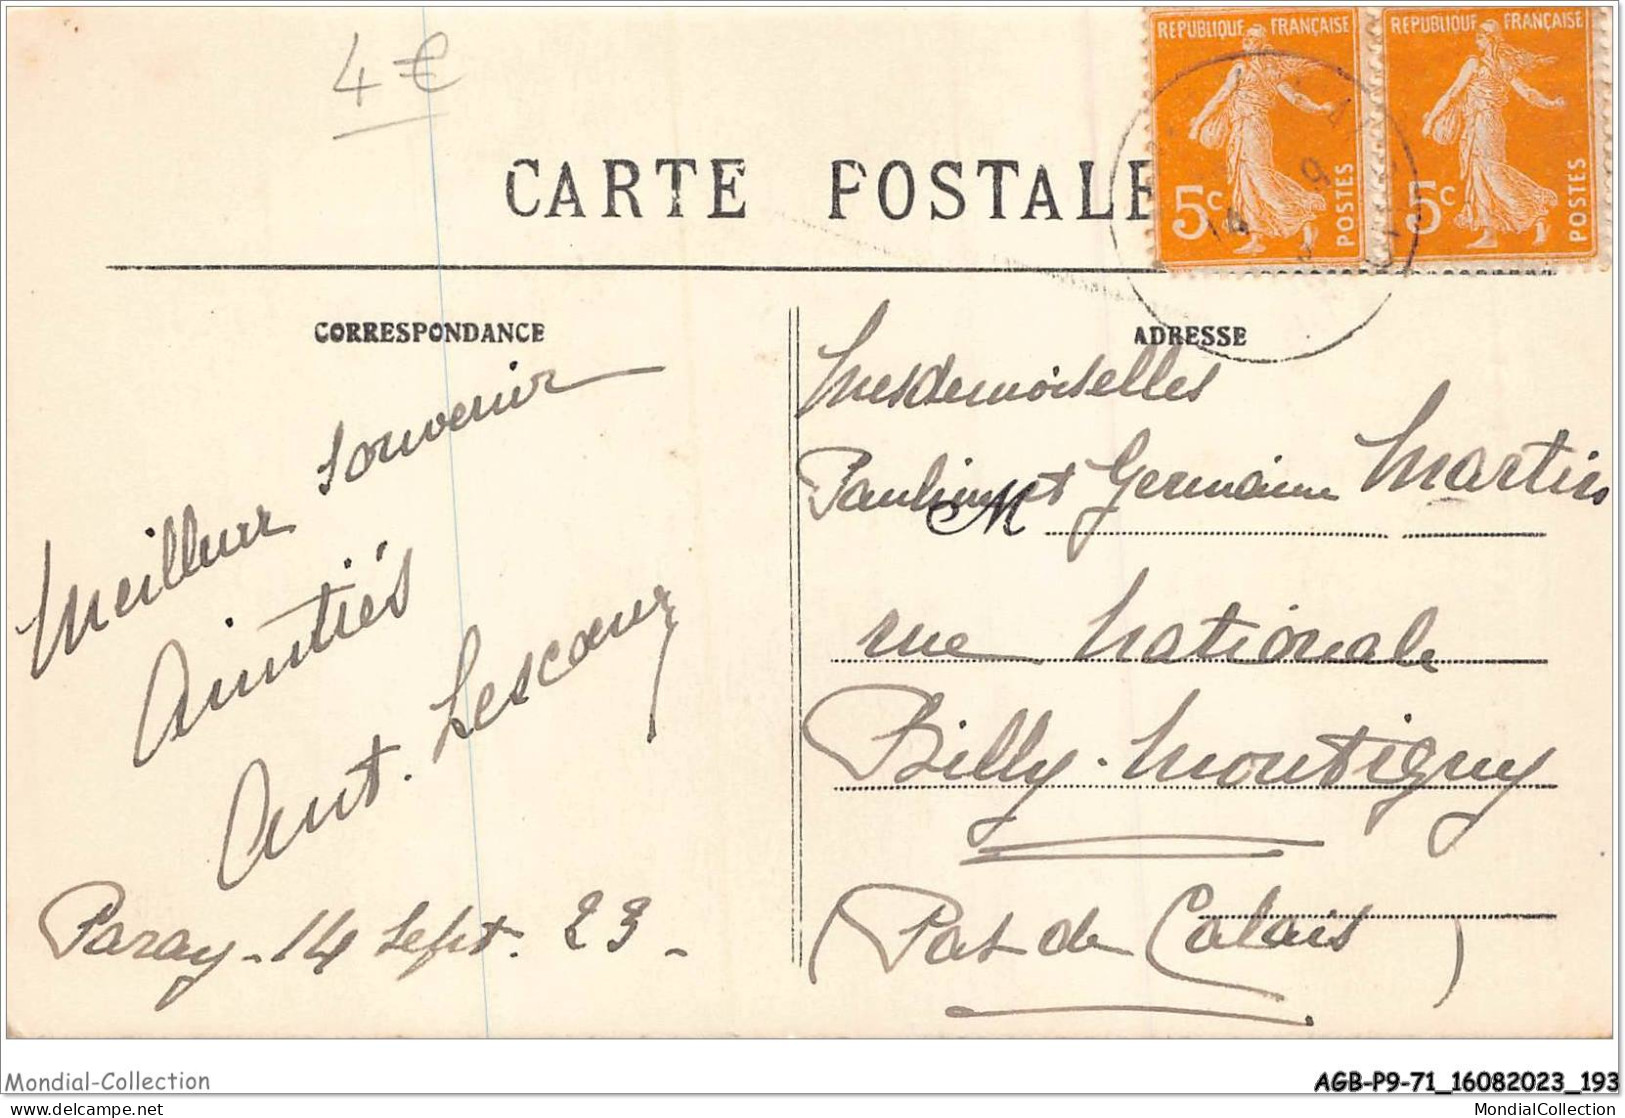 4€
REPUBLIQUE FRANÇAISE
5c
POSTES
REPUBLIQUE FRANÇAISE
5c
POSTES
CARTE POSTALE
CORRESPONDANCE
Meilleur souvenir
Amitiés
Ant.
Paray - 14 Sept. 23 -
ADRESSE
Mesdemoiselles
M
Pauline et Germaine Martin
rue Nationale
Billy-Montigny
(Pas de Calais)
Mondial-Collection
AGB-P9-71_16082023_193
delcampe.net
MondialCollection